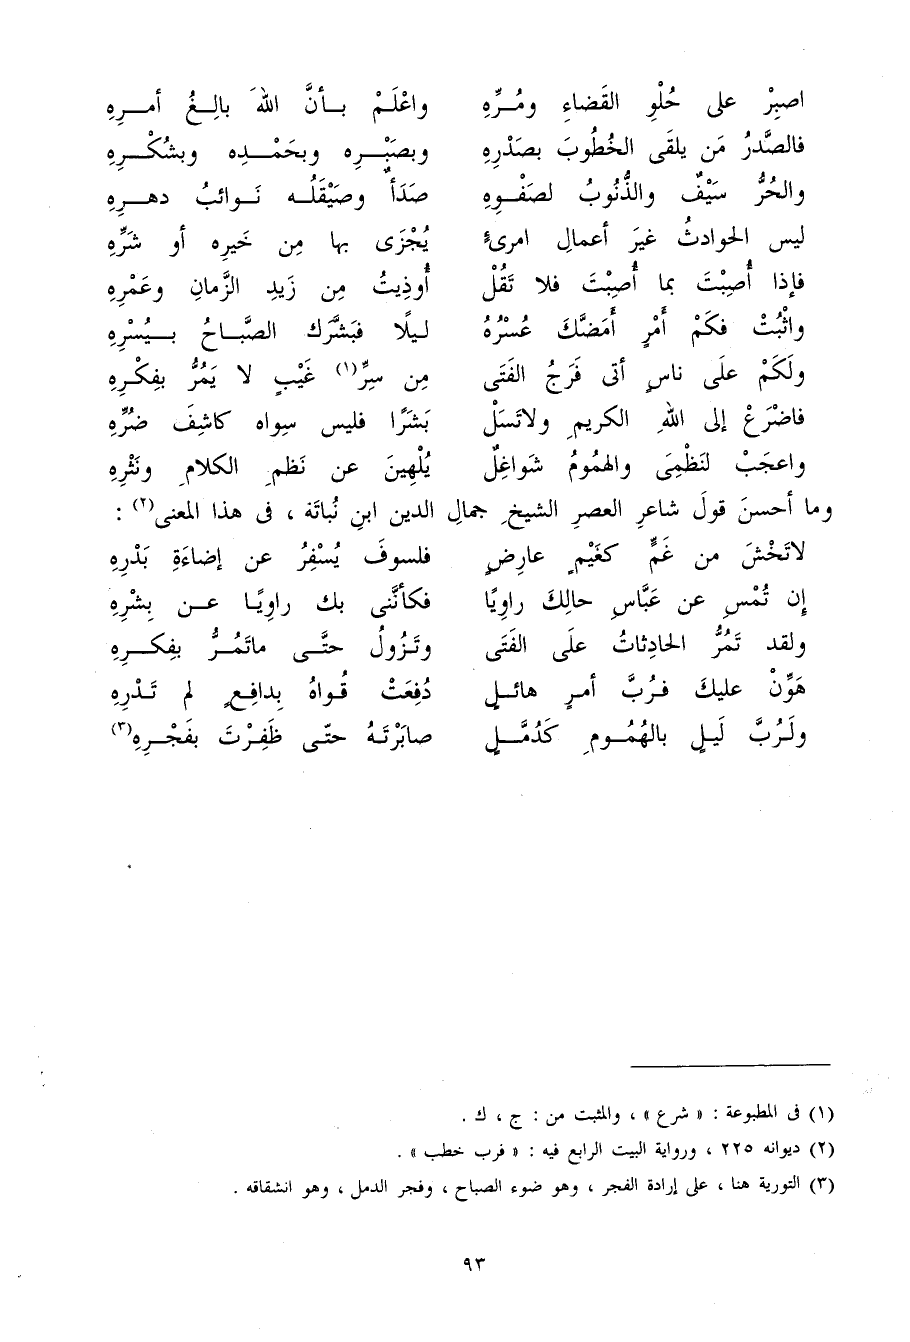 اصبِرْ على حُلْوِ القَضاءِ ومُرِّهِ واعْلَمْ بأنَّ اللهَ بالِغُ أمرِهِ
فالصَّدرُ مَن يلقَى الخُطُوبَ بصَدْرِهِ وبصَبْرِه وبحَمْدِه وبشُكْرِهِ
والحُرُّ سَيْفٌ والذُّنُوبُ لصَفْوِهِ صَدَأٌ وصَيْقَلُه نَوائبُ دهرِهِ
ليس الحوادثُ غيرَ أعمالِ امرئٍ يُجْزَى بها مِن خَيرِه أو شَرِّهِ
فإذا أُصِبْتَ بما أُصِبْتَ فلا تَقُلْ أُوذِيتُ مِن زَيدِ الزَّمانِ وعَمْرِهِ
واثْبُتْ فكَمْ أَمْرٍ أَمَضَّكَ عُسْرُهُ ليلًا فبَشَّرَك الصَّباحُ بيُسْرِهِ
ولَكَمْ علَى ناسٍ أتى فَرَجُ الفَتَى مِن سِرِّ(١) غَيْبٍ لا يَمُرُّ بفِكْرِهِ
فاضْرَعْ إلى اللهِ الكريمِ ولاتَسَلْ بَشَرًا فليس سِواه كاشِفَ ضُرِّهِ
واعجَبْ لنَظْمِى والهمُومُ شَواغِلٌ يُلْهِينَ عن نَظمِ الكلامِ ونَثْرِهِ
وما أحسنَ قولَ شاعرِ العصرِ الشيخِ جمالِ الدين ابنِ نُباتَة ، فى هذا المعنى(٢) :
لاتَخْشَ من غَمٍّ كغَيْمٍ عارِضٍ فلسوفَ يُسْفِرُ عن إضاءَةِ بَدْرِهِ
إن تُمْسِ عن عَبَّاسِ حالِكَ راوِيًا فكأنَّنى بك راوِيًا عن بِشْرِهِ
ولقد تَمُرُّ الحادِثاتُ علَى الفَتَى وتَزُولُ حتَّى ماتَمُرُّ بفِكرِهِ
هَوِّنْ عليكَ فرُبَّ أمرٍ هائلٍ دُفِعَتْ قُواهُ بِدافِعٍ لم تَدْرِهِ
ولَرُبَّ لَيلٍ بالهُمُومِ كَدُمَّلٍ صابَرْتَهُ حتّى ظَفِرْتَ بفَجْرِهِ(٣)
(١) فى المطبوعة : « شرع » ، والمثبت من : ج ، ك .
(٢) ديوانه ٢٢٥ ، ورواية البيت الرابع فيه : « فرب خطب » .
(٣) التورية هنا ، على إرادة الفجر ، وهو ضوء الصباح ، وفجر الدمل ، وهو انشقاقه .
٩٣